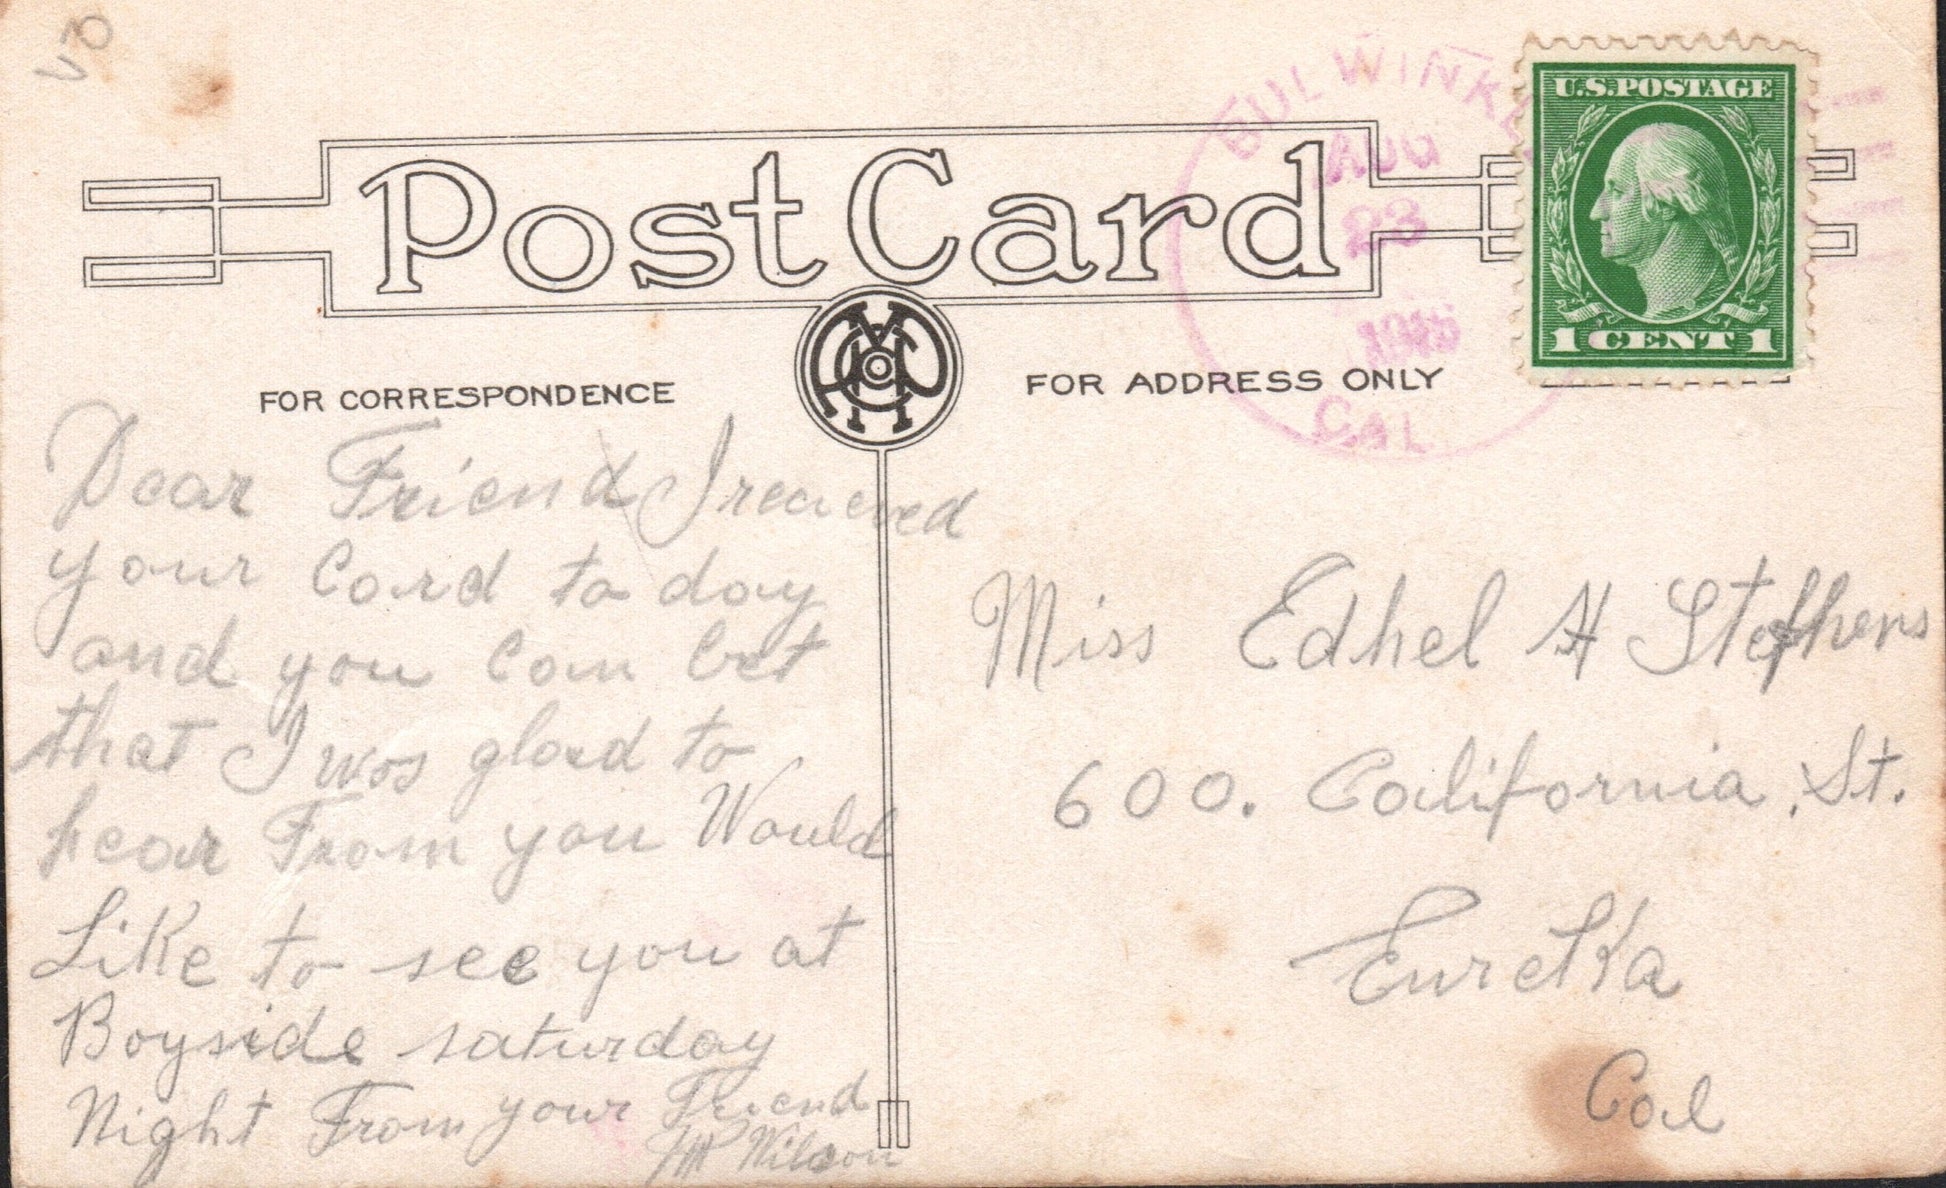 BULWINKE
AUG
23
CAL
U.S. POSTAGE
1 CENT 1
Post Card
FOR CORRESPONDENCE
FOR ADDRESS ONLY
Dear Friend I reacieved
your Card to day
and you can bet
that I was glaed to
hear From you Would
Like to see you at
Bayside saturday
Night From your Friend
Wilson
Miss Edhel H Stephens
600. California St.
Eureka
Cal